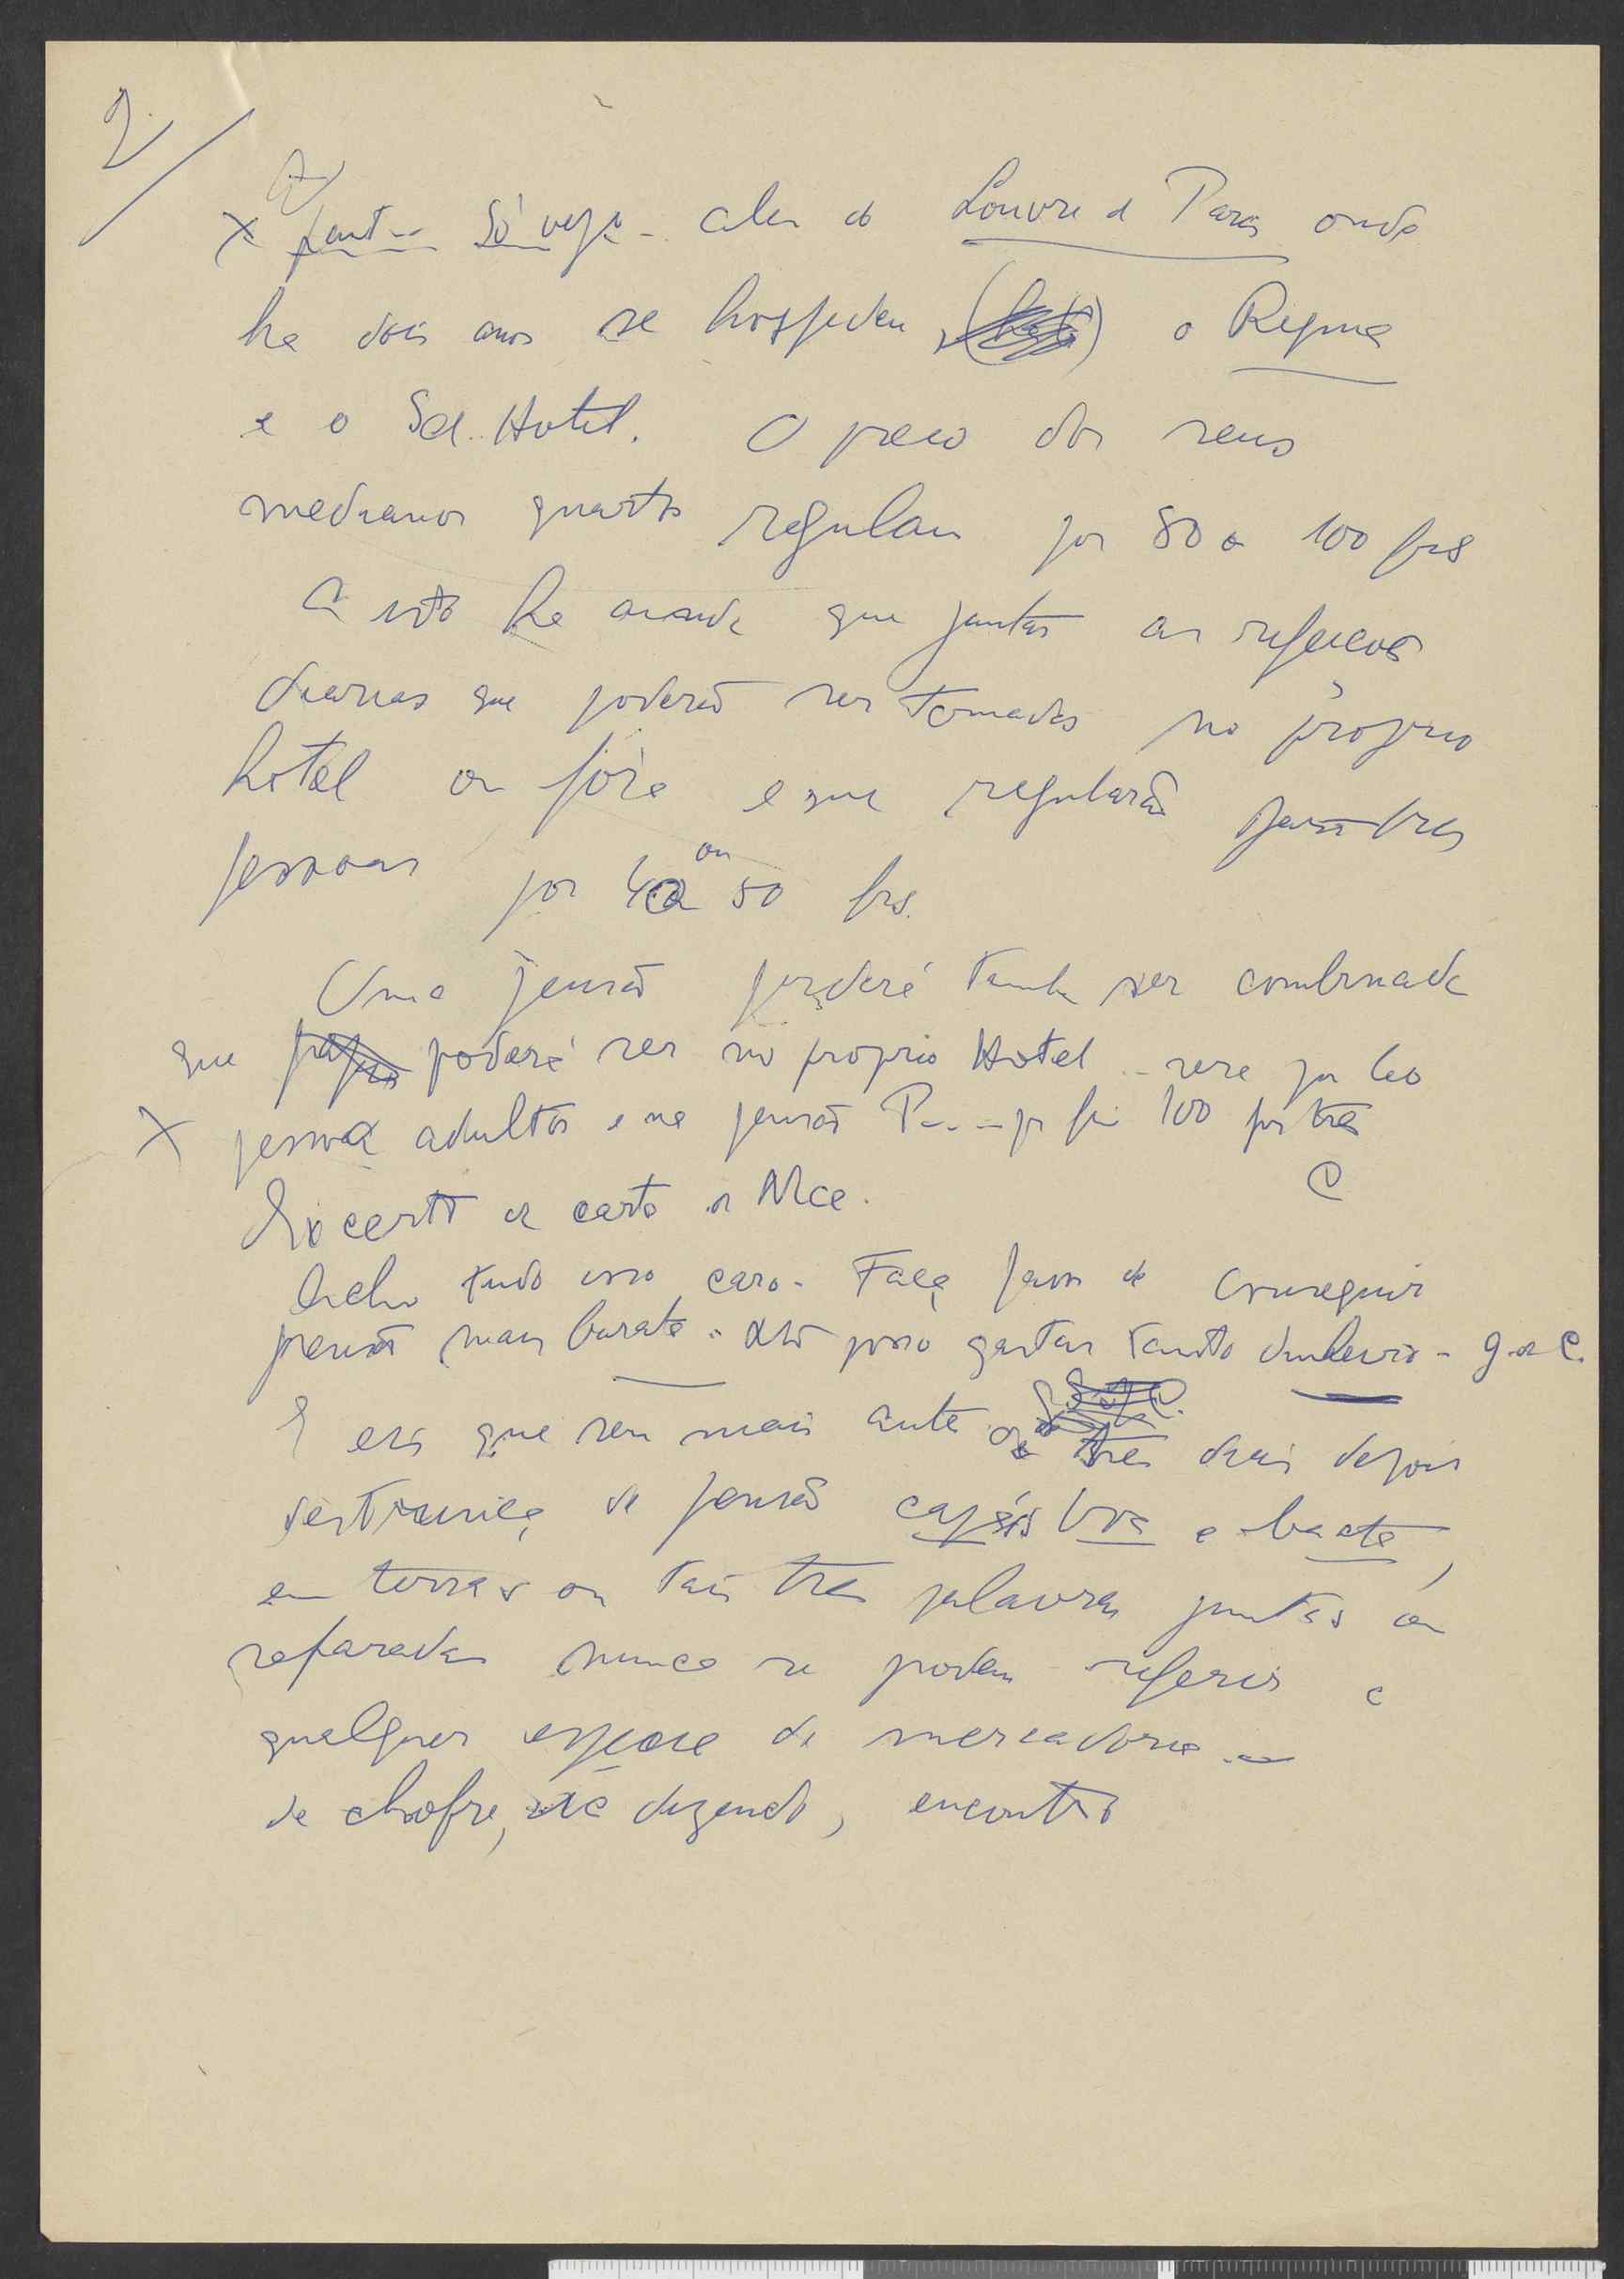 2
X Só vejo - alem do Louvre e Paris onde
ha dois anos se hospedou, o Regina
e o Sd. Hotel. O preco dos seus
medianos quartos regulam por 80 a 100 frs
A isto ha ainda que juntar as refeicoes
diarias que poderão ser tomadas no proprio
hotel ou fóra e que regularão para tres
pessoas por 40 ou 50 frs.
Uma pensão poderá tamb ser combinada
que poderá ser no proprio Hotel - sera por
X pessoa adultos e na pensão P... 100 por tres
Excerto de carta a Nice.
Acho tudo isso caro - Faça favor de conseguir
pensão mais barata. Não posso gastar tanto dinheiro - g. de C.
E eis que sem mais ante tres dias depois
de pensão
em terras ou tais tres palavras juntas ou
separadas nunca se podem referir a
qualquer especie de mercadoria
de chofre, dizendo, encontro